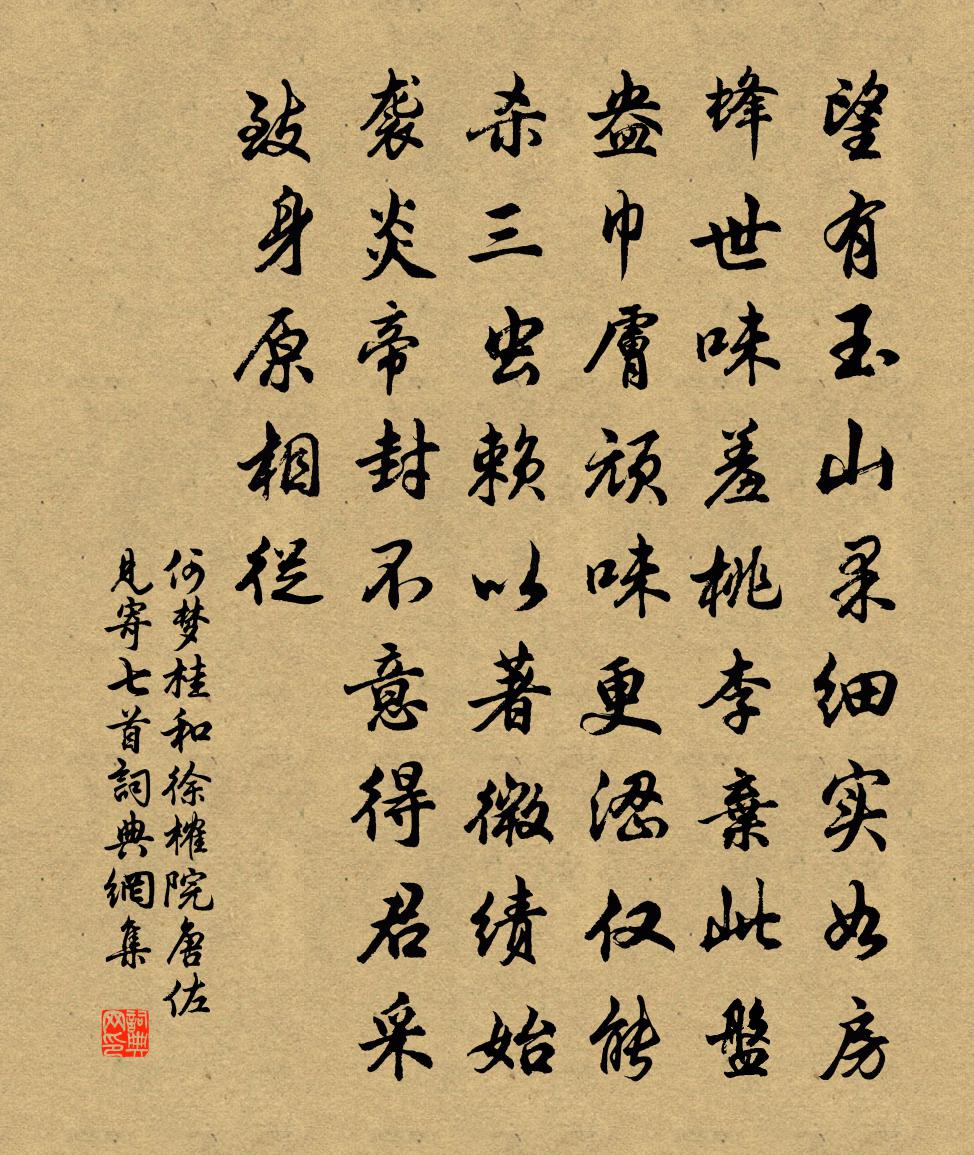 望有玉山果细实如房
蜂世味羞桃李棄此盤
盎巾膚頑味更澀仅能
杀三虫赖以著微绩始
袭炎帝封不意得君采
致身原相從
何梦桂和徐榷院唐佐
見寄七首詞典網集